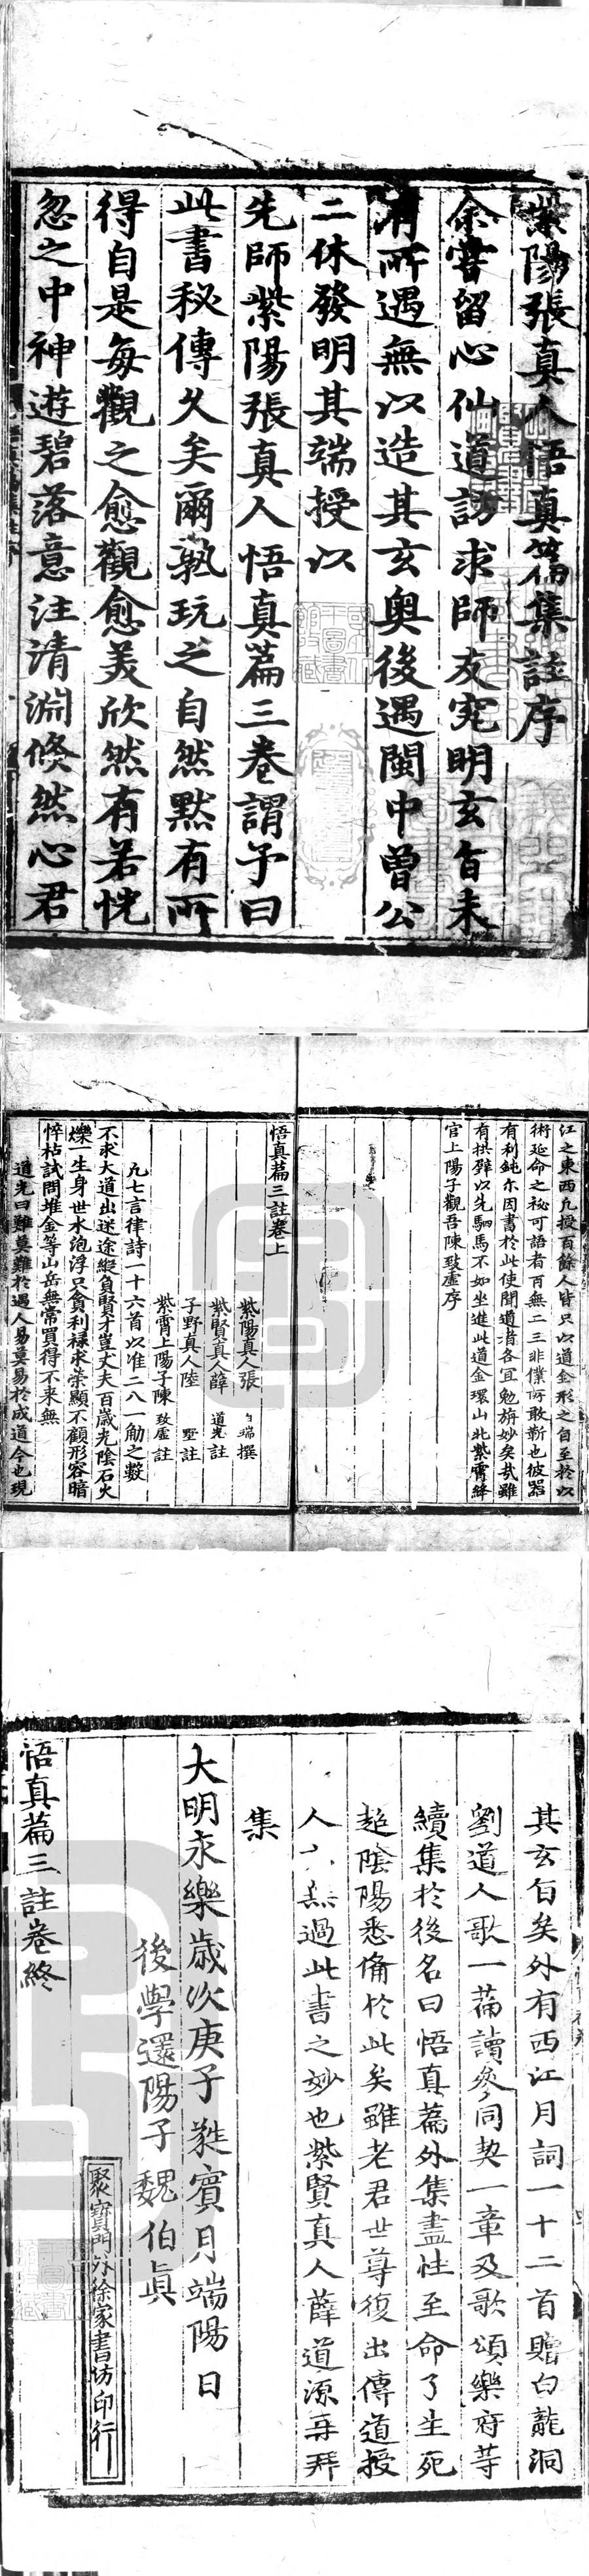 紫陽張真人悟真篇集註序
余甞留心仙道訪求師友究明玄旨未
有所遇無以造其玄奥後遇閩中曾公
二休發明其端授以
先師紫陽張真人悟真篇三巻謂予曰
此書秘傳久矣爾孰玩之自然黙有所
得自是每觀之愈觀愈美欣然有若恍
忽之中神遊碧落意注清淵倐然心君
江之東西凢授百餘人皆只以道全形之自至扵以
術延命之秘可語者百無二三非僕何敢靳也彼器
有利鈍尒因書扵此使聞道者各冝勉旃妙矣㢤雖
有拱璧以先駟馬不如坐進此道金環山北紫霄絳
官上陽子觀吾陳致虛序
悟真篇三註巻上
紫陽真人張 伯端 撰
紫賢真人薛 道光 註
子野真人陸 墅 註
紫霄上陽子陳 致虛 註
凢七言律詩一十六首以准二八一觔之數
不求大道出迷途縱負賢才豈丈夫百歲光陰石火
爍一生身世水泡浮只貪利祿求榮顯不顧形容暗
悴枯試問堆金等山岳無常買得不来無
道光曰難莫難扵遇人易莫易扵成道今也現
其玄旨矣外有西江月詞一十二首贈白龍洞
劉道人歌一篇讀叅同契一章及歌頌樂府䓁
續集扵後名曰悟真篇外集盡性至命了生死
超陰陽悉俻扵此矣雖老君世尊復出傳道授
人 無過此書之妙也紫賢真人薛道源再拜
集
大明永樂歲次庚子蕤賓月端陽日
後學還陽子魏伯真
聚寳門外徐家書坊印行
悟真篇三註巻終